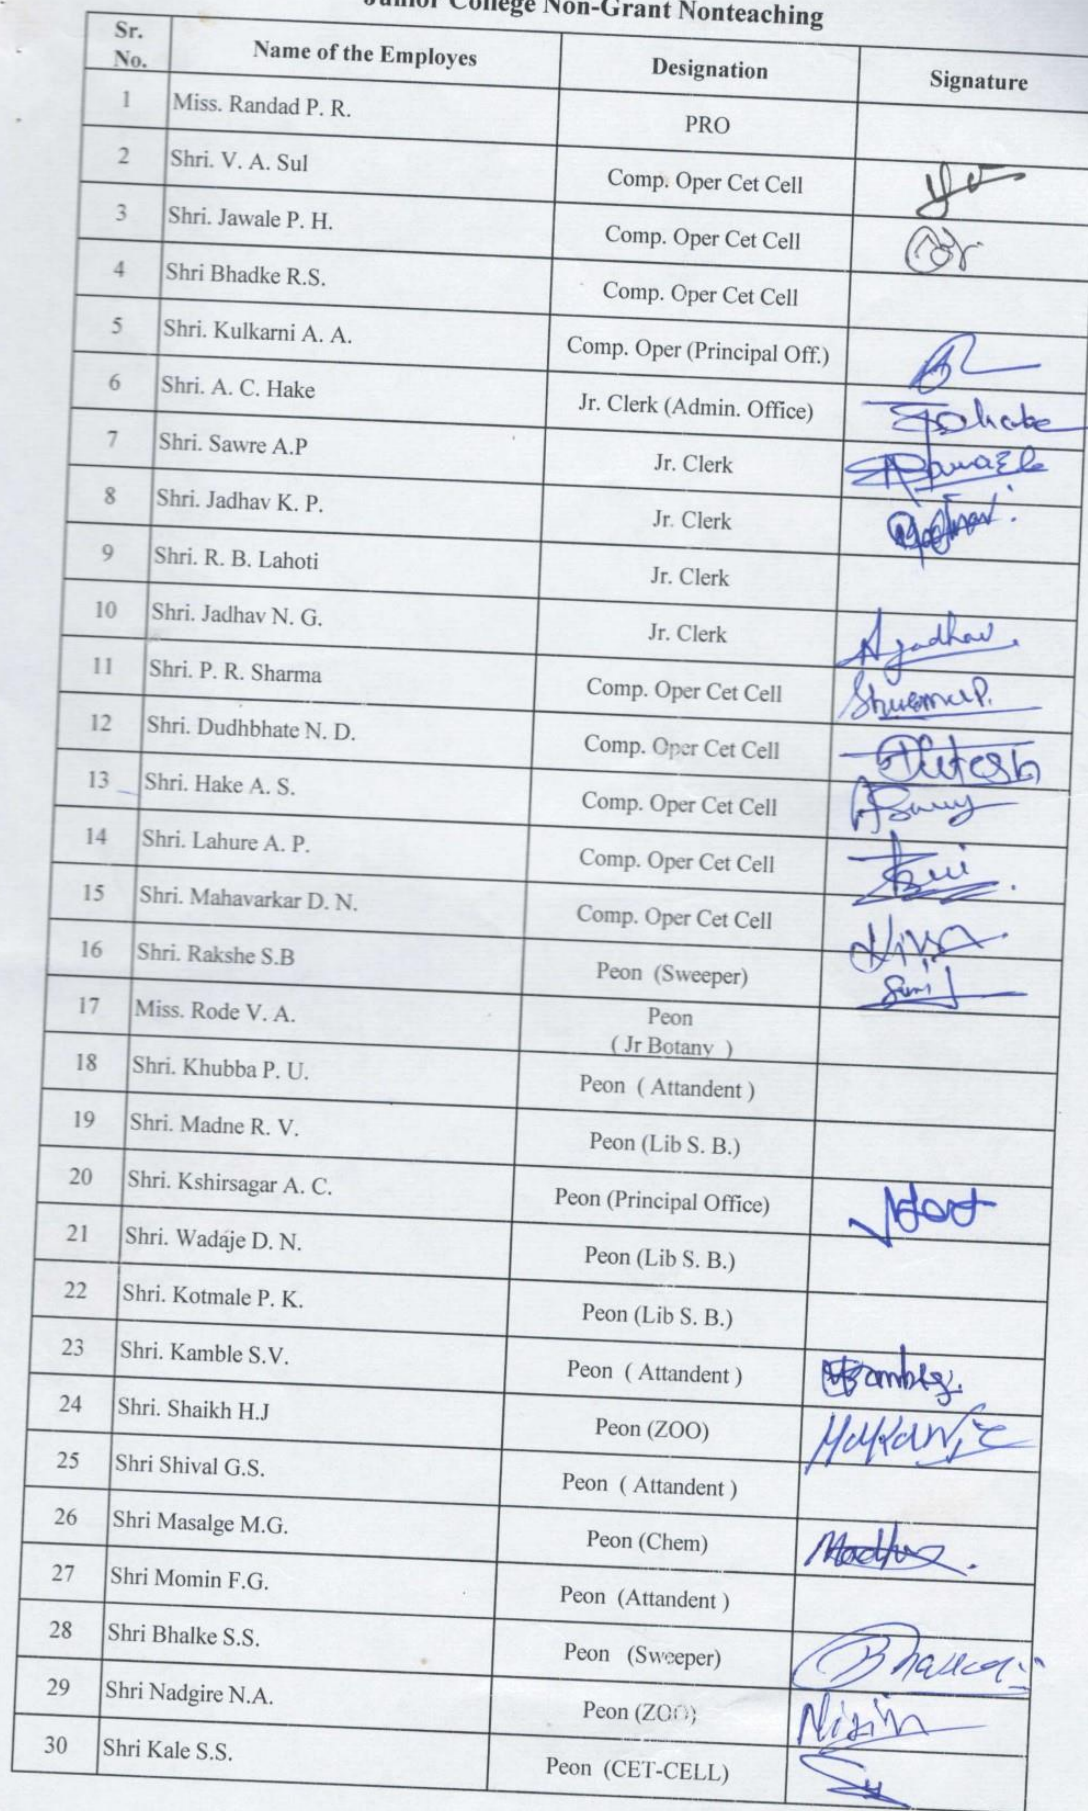 Junior College Non-Grant Nonteaching
Sr. No. Name of the Employes Designation Signature
1 Miss. Randad P. R. PRO
2 Shri. V. A. Sul Comp. Oper Cet Cell
3 Shri. Jawale P. H. Comp. Oper Cet Cell
4 Shri Bhadke R.S. Comp. Oper Cet Cell
5 Shri. Kulkarni A. A. Comp. Oper (Principal Off.)
6 Shri. A. C. Hake Jr. Clerk (Admin. Office)
7 Shri. Sawre A.P Jr. Clerk
8 Shri. Jadhav K. P. Jr. Clerk
9 Shri. R. B. Lahoti Jr. Clerk
10 Shri. Jadhav N. G. Jr. Clerk
11 Shri. P. R. Sharma Comp. Oper Cet Cell
12 Shri. Dudhbhate N. D. Comp. Oper Cet Cell
13 Shri. Hake A. S. Comp. Oper Cet Cell
14 Shri. Lahure A. P. Comp. Oper Cet Cell
15 Shri. Mahavarkar D. N. Comp. Oper Cet Cell
16 Shri. Rakshe S.B Peon (Sweeper)
17 Miss. Rode V. A. Peon
( Jr Botany )
18 Shri. Khubba P. U. Peon ( Attandent )
19 Shri. Madne R. V. Peon (Lib S. B.)
20 Shri. Kshirsagar A. C. Peon (Principal Office)
21 Shri. Wadaje D. N. Peon (Lib S. B.)
22 Shri. Kotmale P. K. Peon (Lib S. B.)
23 Shri. Kamble S.V. Peon ( Attandent )
24 Shri. Shaikh H.J Peon (ZOO)
25 Shri Shival G.S. Peon ( Attandent )
26 Shri Masalge M.G. Peon (Chem)
27 Shri Momin F.G. Peon (Attandent )
28 Shri Bhalke S.S. Peon (Sweeper)
29 Shri Nadgire N.A. Peon (ZOO)
30 Shri Kale S.S. Peon (CET-CELL)